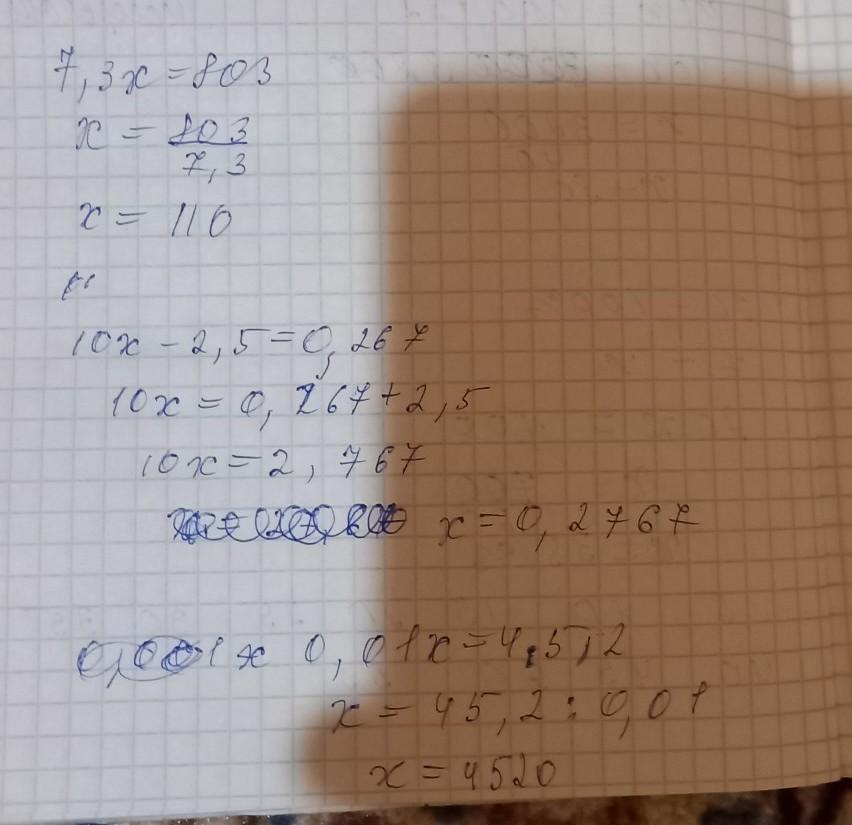 7,3x=803
x = 803
7,3
x = 110
10x - 2,5=0,267
10x = 0,267+2,5
10x = 2,767
x = 0,2767
0,01x = 45,2
x = 45,2 : 0,01
x = 4520